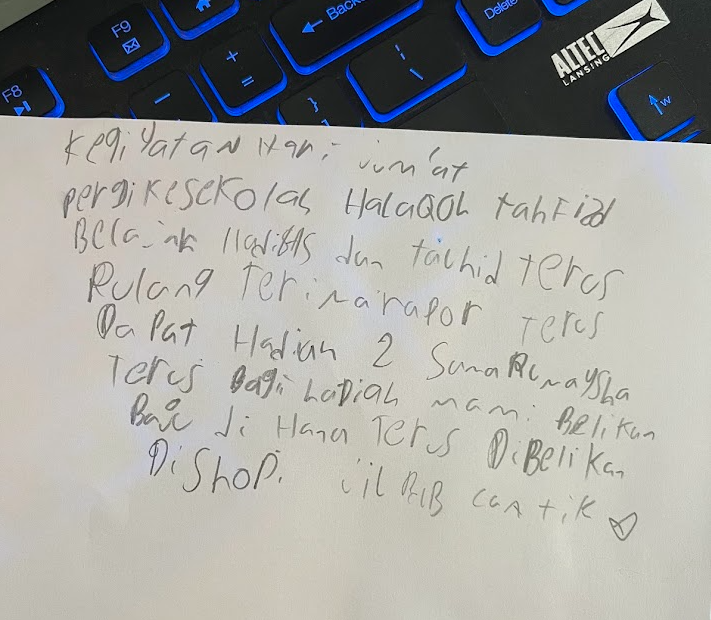 F9
Back
Delete
F8
+
=
-
\
}
ALTEC
LANSING
W
kegiYatan Hari jum'at
pergi kesekolah HalaQoh tahFidd
Belajar Hadits dan tauhid terus
Pulang Terima rapor terus
DaPat Hadiah 2 Sama Rumaysha
Terus Bagi haDiah mami Belikan
Baju di Hana Terus DiBelikan
DiShoP. jilBaB cantik